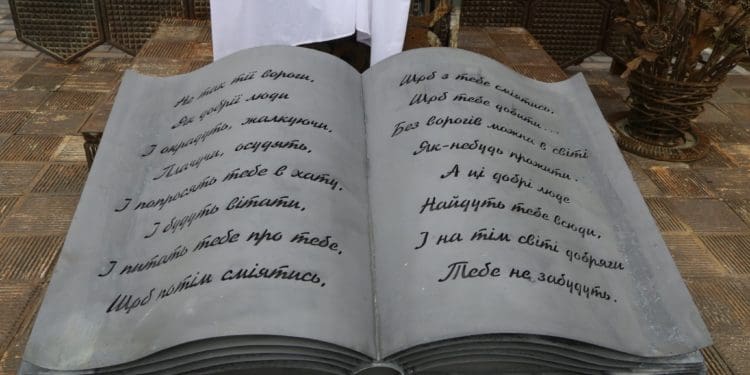 Не так тії вороги,
Як добрії люди
І окрадуть, жалкуючи,
Плачучи, осудять,
І попросять тебе в хату,
І будуть вітати,
І питать тебе про тебе,
Щоб потім сміятись,
Щоб з тебе сміятись,
Щоб тебе добити....
Без ворогів можна в світі
Як-небудь прожити.
А ці добрі люде
Найдуть тебе всюди,
І на тім світі добряги
Тебе не забудуть.